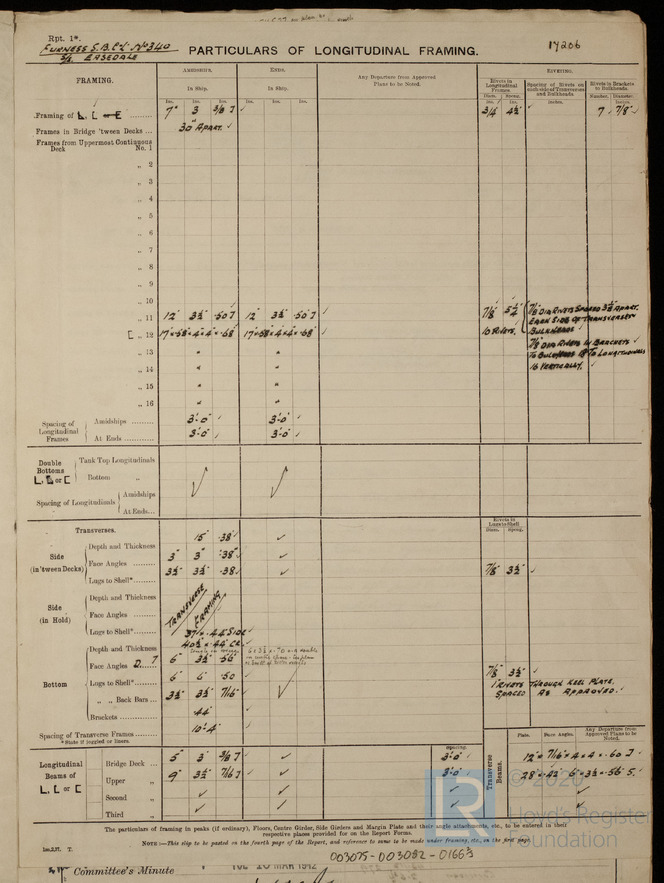 Rpt. 1*.
FURNESS S.B. Co. Ld. No 340
S/S EASEDALE
PARTICULARS OF LONGITUDINAL FRAMING.
17206
FRAMING.
AMIDSHIPS.
ENDS.
Any Departure from Approved Plans to be Noted.
RIVETING.
In Ship.
In Ship.
Rivets in Longitudinal Frames
Spacing of Rivets on each side of Transverses and Bulkheads
Rivets in Brackets to Bulkheads.
Ins. Ins. Ins.
Ins. Ins. Ins.
Diam. Spcng.
Inches.
Number. Diameter.
Framing of L, [ or [ 7" 3 3/8 J 3/4 4½ 7 7/8
Frames in Bridge 'tween Decks ... 30" APART.
Frames from Uppermost Continuous Deck No. 1
„ 2
„ 3
„ 4
„ 5
„ 6
„ 7
„ 8
„ 9
„ 10
„ 11 12" 3½ .50 J 12" 3½ .50 J 7/8 5¼
7/8 DIA RIVETS SPACED APART.
EACH SIDE OF TRANSVERSES
BULKHEADS
[ „ 12 17"×.58×4×4×.68 17"×.58×4×4×.68 10 RIVETS.
7/8 DIA RIVETS IN BRACKETS
TO BULKHEADS TO LONGITUDINALS
16 VERTICALLY.
„ 13 " "
„ 14 " "
„ 15 " "
„ 16 " "
Spacing of Longitudinal Frames
Amidships ......... 3'-0" 3'-0"
At Ends ......... 3'-0" 3'-0"
Double Bottoms L, [ or [
Tank Top Longitudinals
Bottom „
Spacing of Longitudinals
Amidships
At Ends...
Transverses.
Rivets in Lugs to Shell
Diam. Spcng.
Side (in 'tween Decks)
Depth and Thickness 15" .38
Face Angles ......... 3" 3" .38
Lugs to Shell* ......... 3½ 3½ .38 7/8 3½
Side (in Hold)
Depth and Thickness
Face Angles .........
Lugs to Shell* .........
TRANSVERSE FRAMING
37½ × .44 SIDE
40½ × .44 CR.
Bottom
Depth and Thickness
Face Angles D. 7 6" 3½ .56
Lugs to Shell* ...... 6" 6 .50 7/8 3½
RIVETS THROUGH KEEL PLATE.
SPACED AS APPROVED.
„ „ Back Bars ... 3½ 3½ 7/16
Brackets ......... .44
Spacing of Transverse Frames ......... 10'-4"
*State if joggled or liners.
Transverse Beams.
Plate. Face Angles. Any Departure from Approved Plans to be Noted.
12" × 7/16 × 4 × 4 × .60 J
28 × .42 6 × 3½ × .56 S.
Longitudinal Beams of L, [ or [
Spacing
Bridge Deck ... 5" 3 3/8 J 3'-0"
Upper „ 9" 3½ 7/16 J 3'-0"
Second „
Third „
The particulars of framing in peaks (if ordinary), Floors, Centre Girder, Side Girders and Margin Plate and their angle attachments, etc., to be entered in their
respective places provided for on the Report Forms.
NOTE:—This slip to be posted on the fourth page of the Report, and reference to same to be made under framing, etc., on the first page.
003075-003082-0166
LR
© 2020
Lloyd's Register
Foundation
Committee's Minute